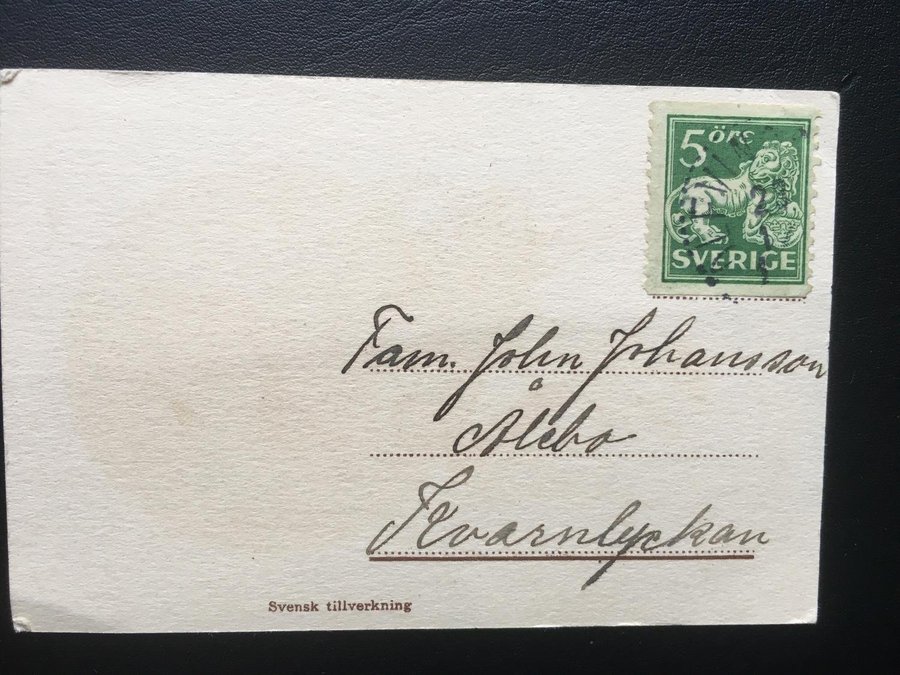 5 öre
SVERIGE
Fam. John Johansson
Ålebo
Kvarnlyckan
Svensk tillverkning